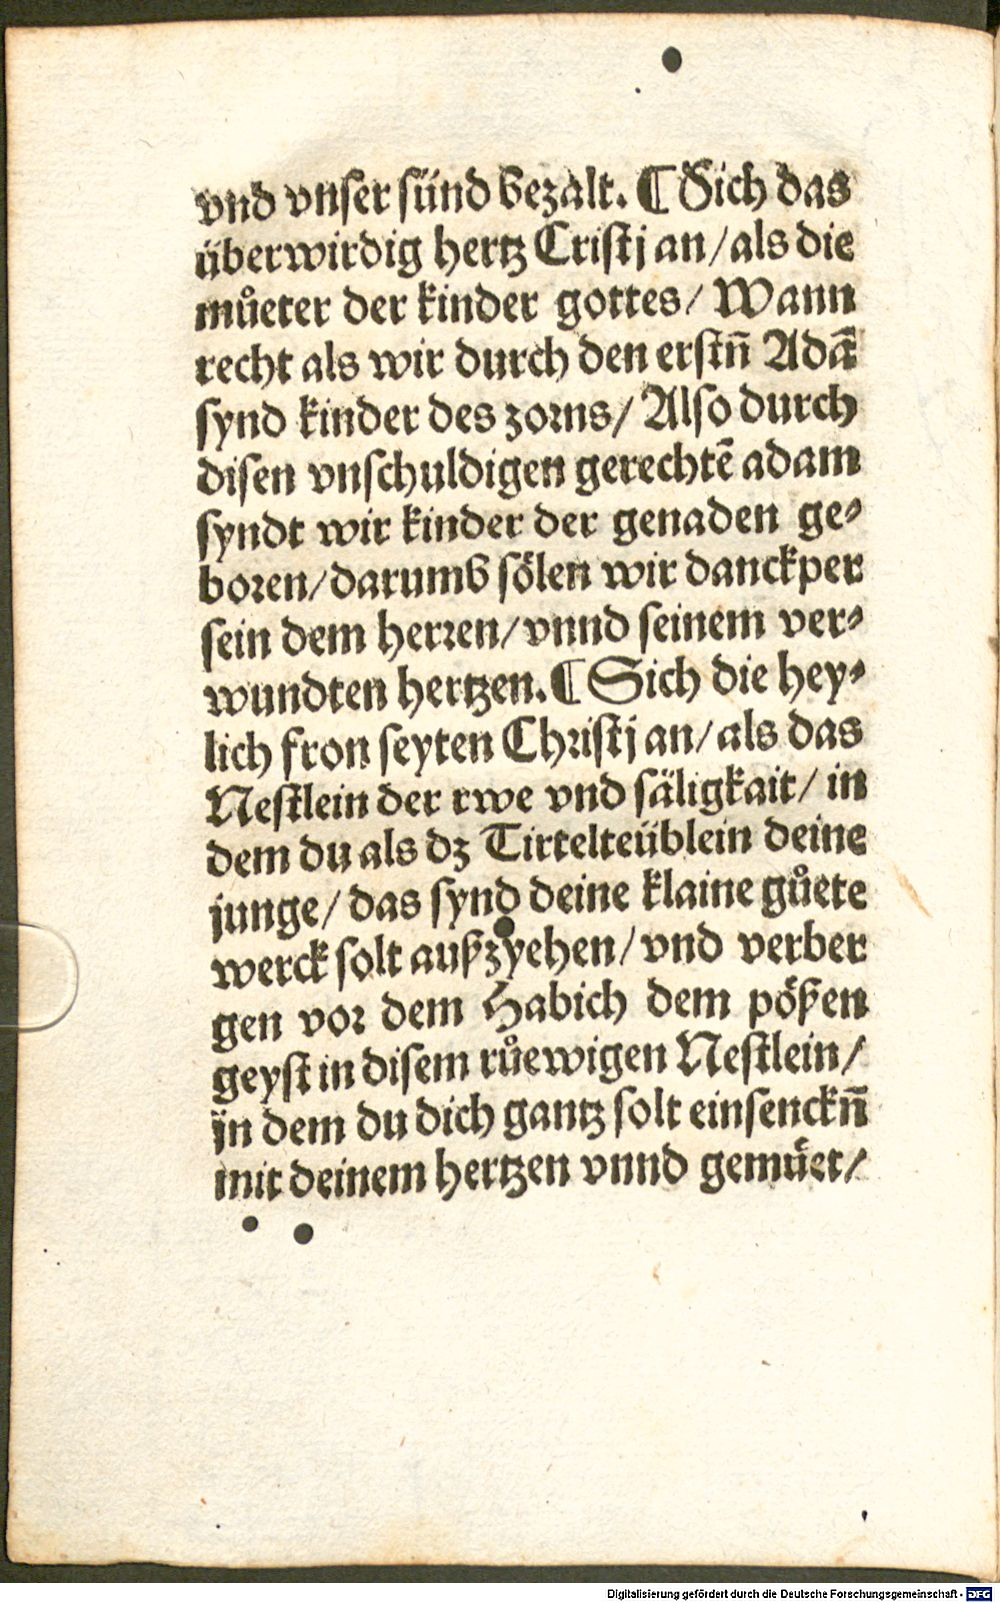 vnd vnser sünd bezalt. ¶ Sich das
überwirdig hertz Cristj an/als die
můeter der kinder gottes/ Wann
recht als wir durch den erstn̄ Adā
synd kinder des zorns/ Also durch
disen vnschuldigen gerechtē adam
syndt wir kinder der genaden ge⸗
boren/darumb sölen wir danckper
sein dem herren/vnnd seinem ver⸗
wundten hertzen.¶ Sich die hey⸗
lich fron seyten Christj an/als das
Nestlein der rwe vnd säligkait/ in
dem du als dz Tirtelteüblein deine
junge/ das synd deine klaine gůete
werck solt außzyehen/vnd verber
gen vor dem Habich dem pößen
geyst in disem růewigen Nestlein/
jn dem du dich gantz solt einsenckn̄
mit deinem hertzen vnnd gemüet/
Digitalisierung gefördert durch die Deutsche Forschungsgemeinschaft - DFG